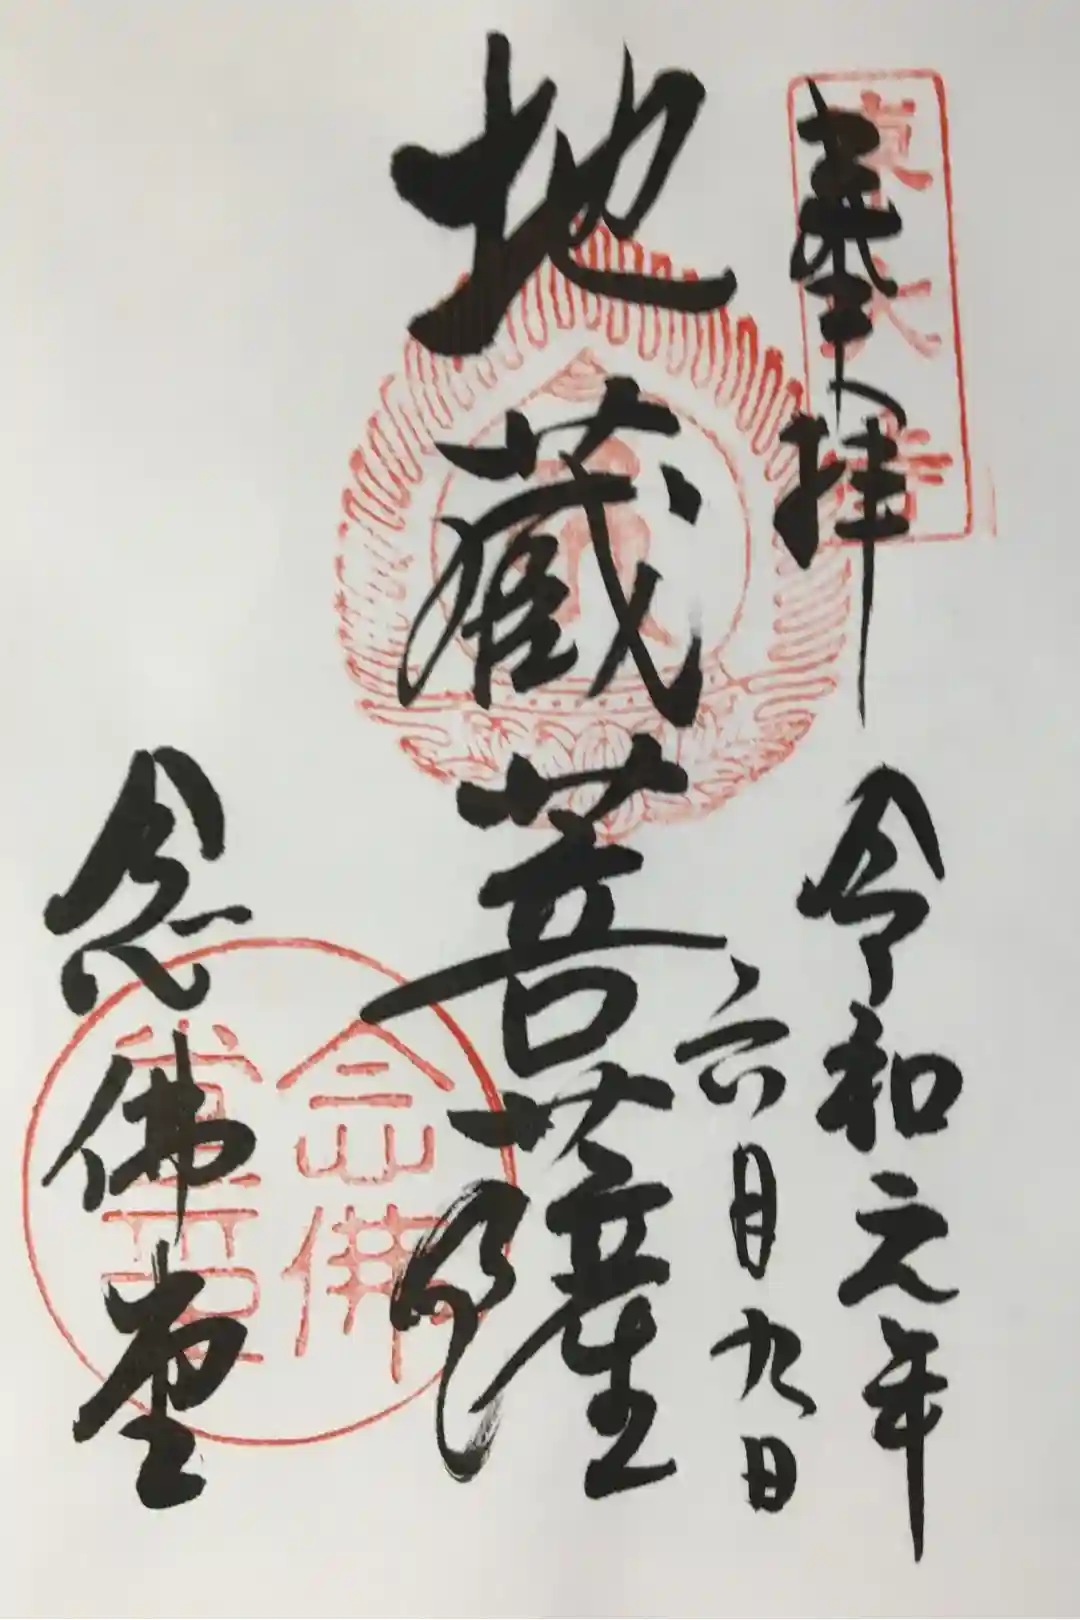 奉拝
東大寺
令和元年
六月九日
地蔵菩薩
念佛堂
念佛
堂印